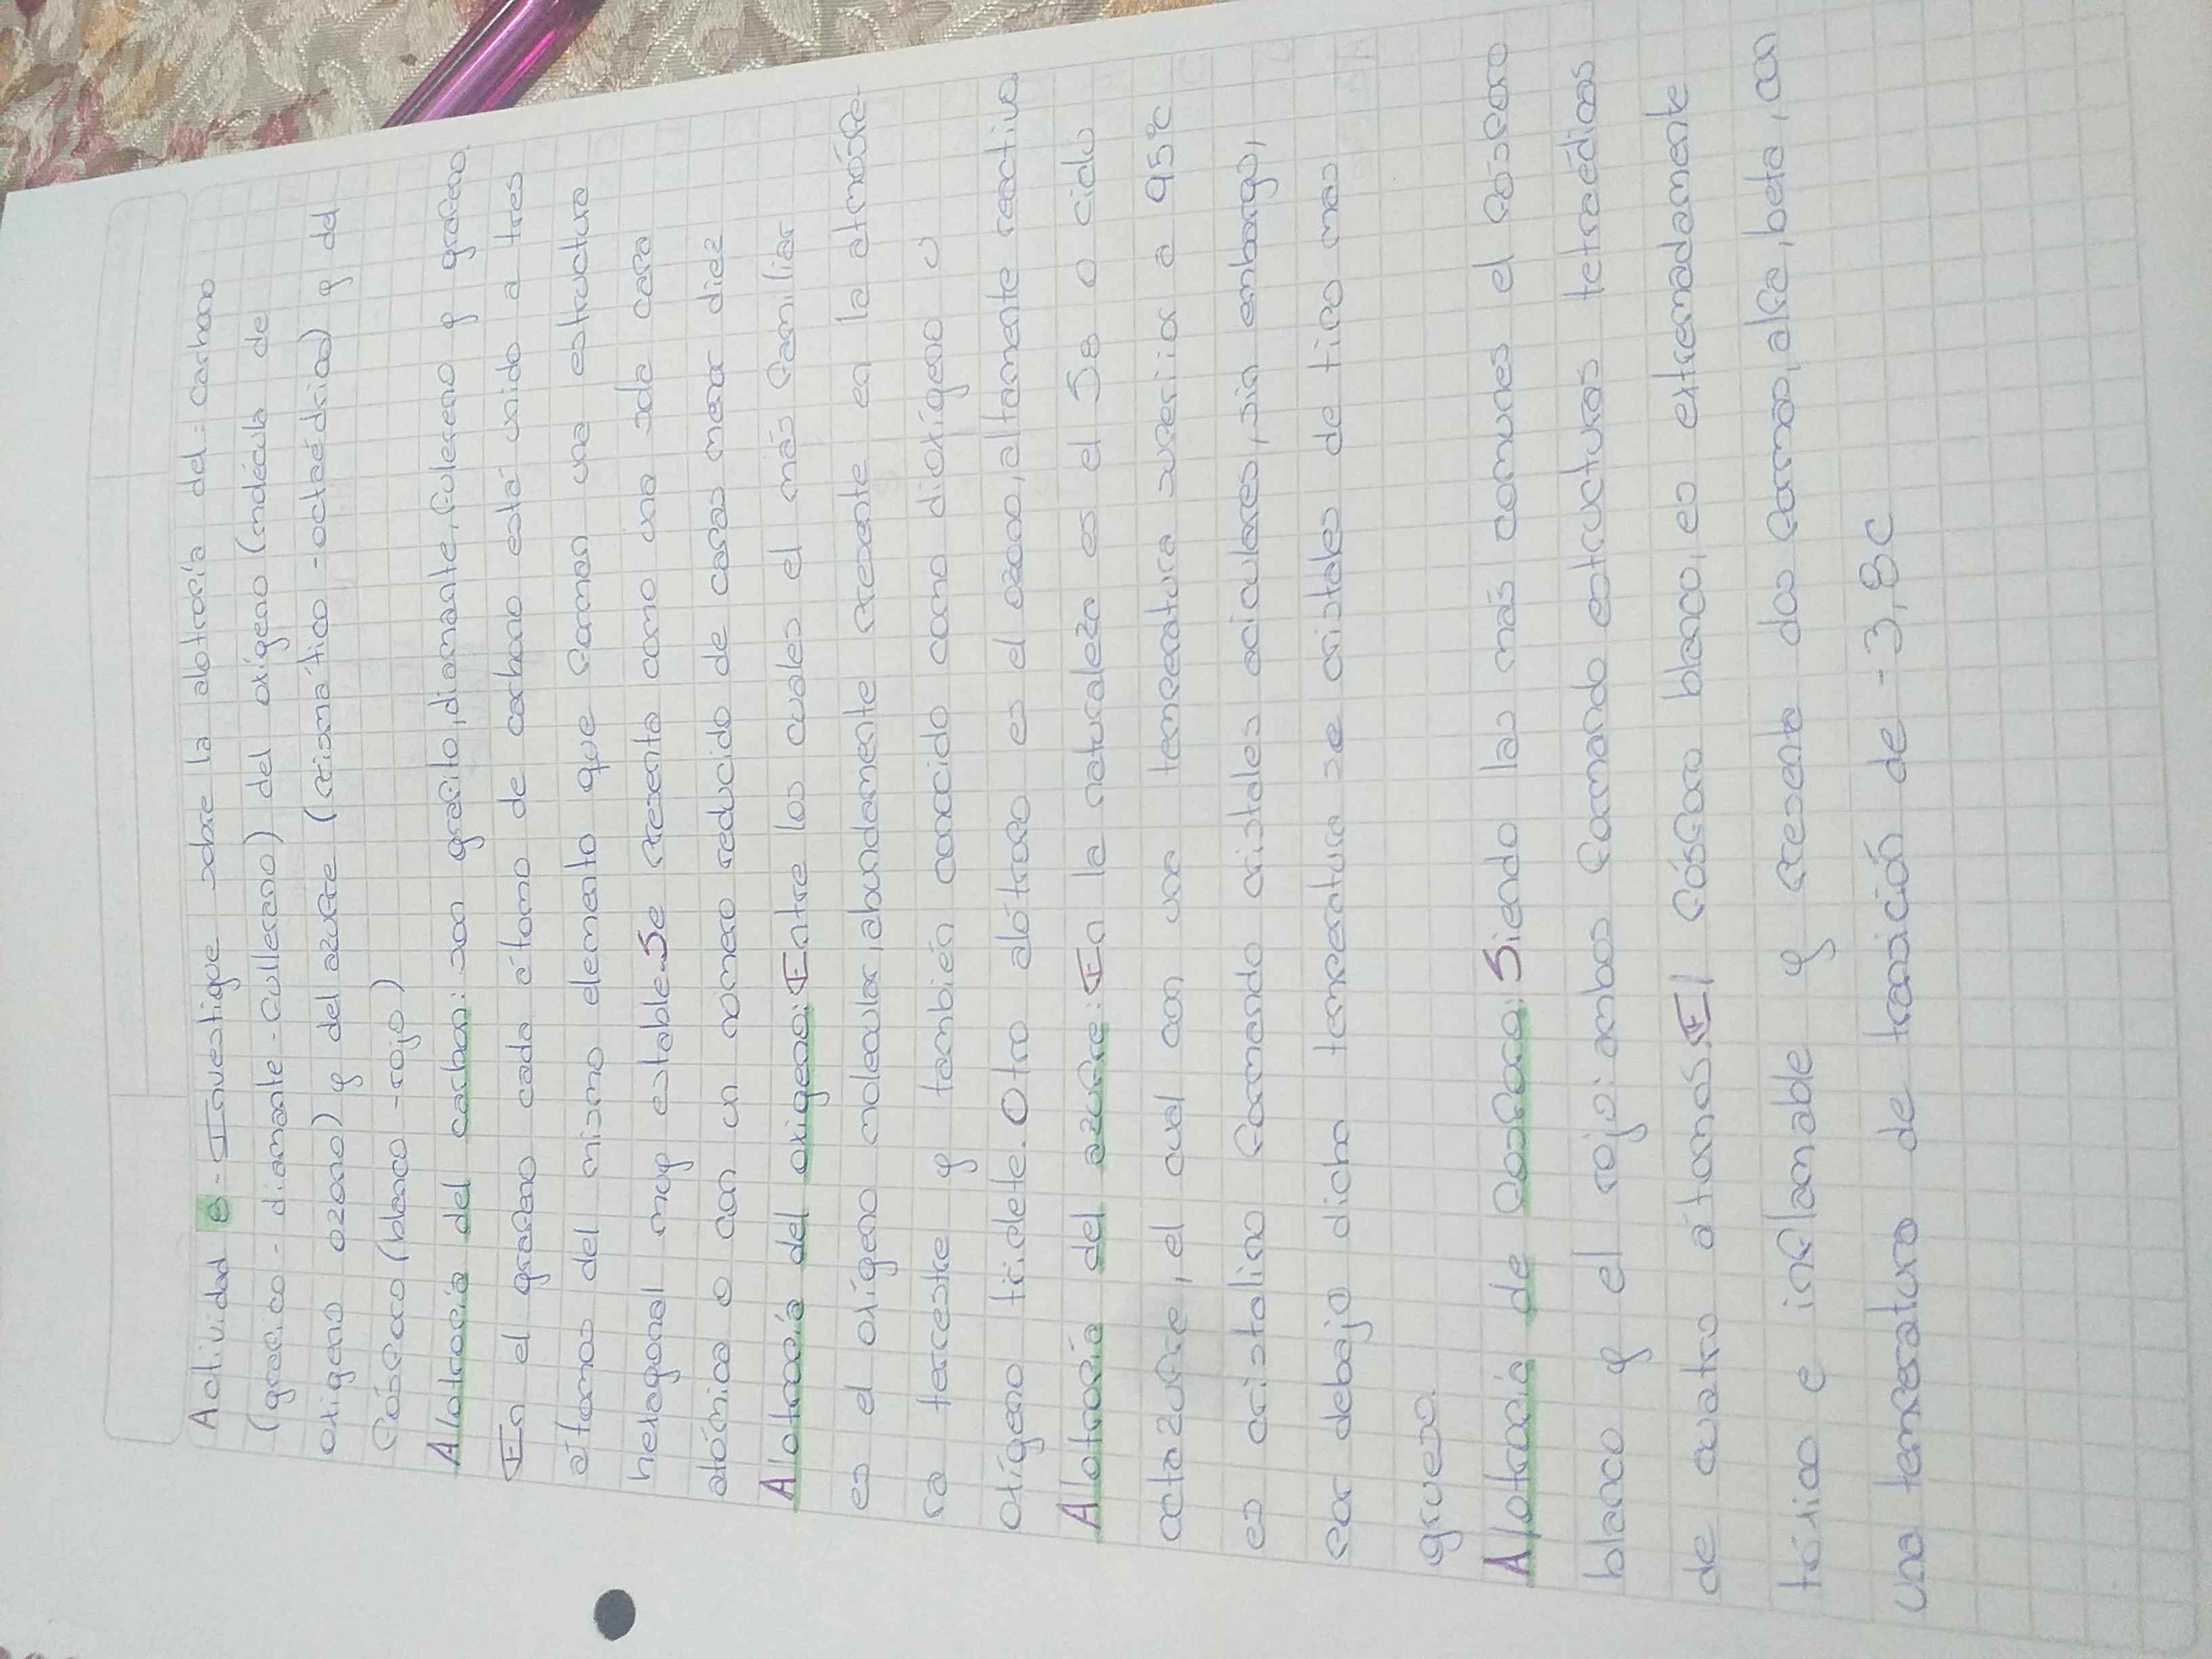 Actividad 8 - Investigue sobre la alotropía del: carbono
(grafico - diamante - fullereno) del oxígeno (molécula de
oxigeno ozono) y del azufre (prismático - octaédrico) y del
fósforo (blanco - rojo)
Alotropía del carbon: son grafito, diamante, fulereno y grafeno.
En el grafeno cada átomo de carbono está unido a tres
átomos del mismo elemento que forman una estructura
hexagonal muy estable. Se presenta como una sola capa
atómica o con un número reducido de capas menor diez
Alotropía del oxigeno: Entre los cuales el más familiar
es el oxígeno molecular, abundamente presente en la atmósfe-
ra terrestre y también conocido como dioxígeno u
oxígeno triplete. Otro alótropo es el ozono, altamente reactivo.
Alotropía del azufre: En la naturaleza es el S8 o ciclo
octazufre, el cual con una temperatura superior a 95°C
es cristalino formando cristales aciculares, sin embargo,
por debajo dicha temperatura se cristales de tipo mas
grueso.
Alotropía de fosforo: Siendo las más comunes el fosforo
blanco y el rojo: ambos formando estructuras tetraédicas
de cuatro átomos. El fósforo blanco, es extremadamente
tóxico e inflamable y presenta dos formas, alfa, beta, con
una temperatura de transición de -3,8C